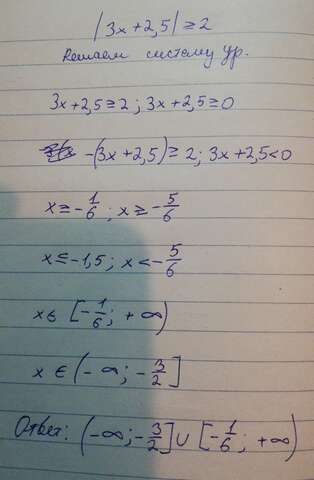 |3x+2,5| ≥ 2
Решаем систему ур.
3x+2,5≥2; 3x+2,5≥0
-(3x+2,5)≥2; 3x+2,5<0
x≥-1/6; x≥-5/6
x≤-1,5; x<-5/6
x∈[-1/6; +∞)
x∈(-∞; -3/2]
Ответ: (-∞; -3/2]∪[-1/6; +∞)